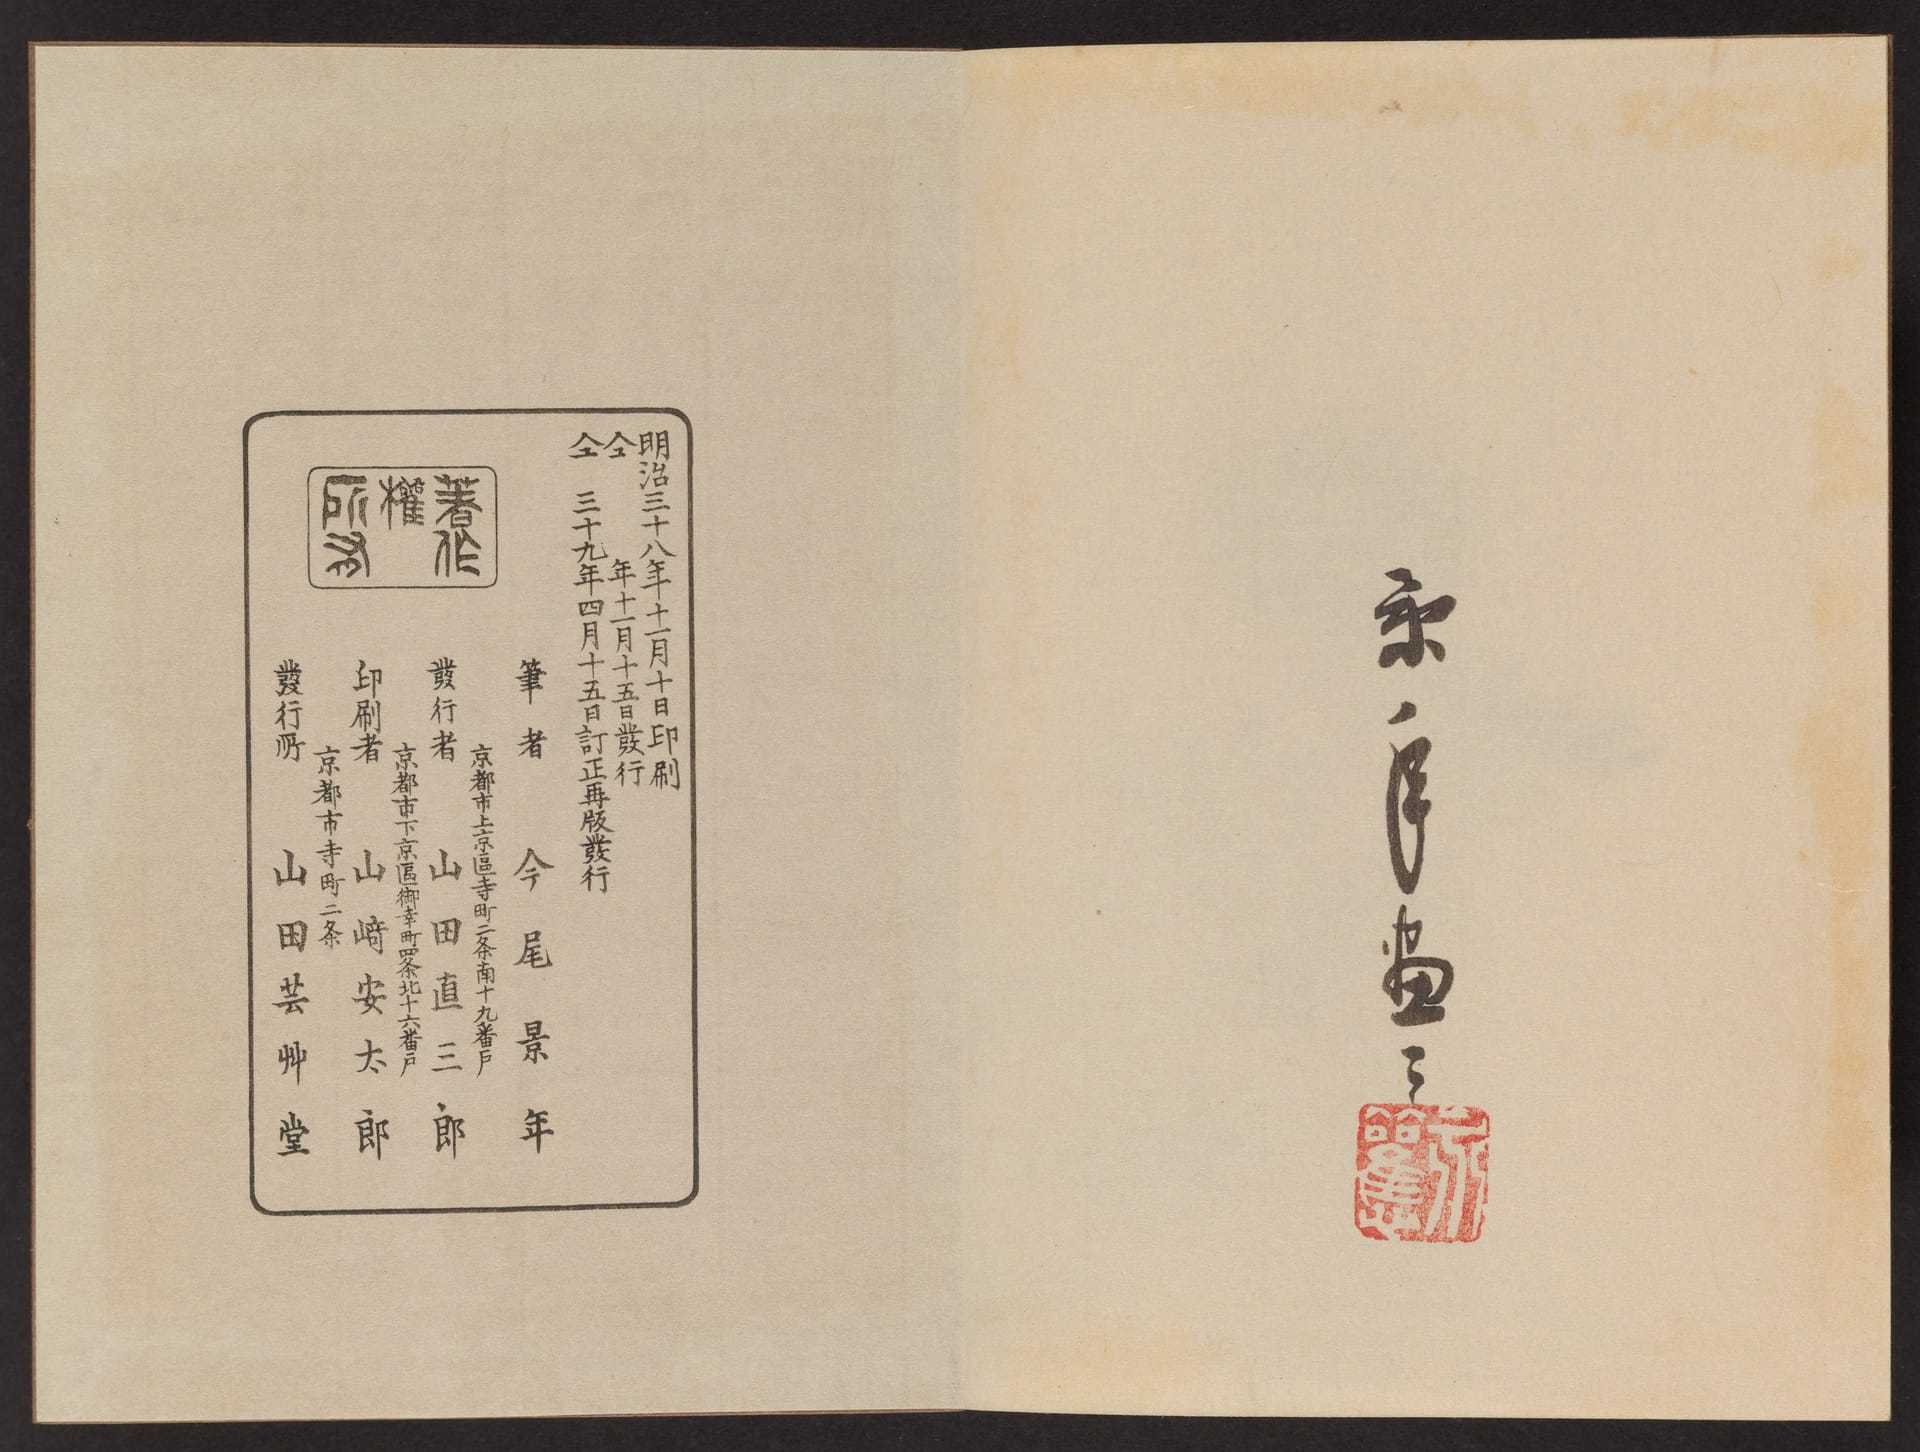 景年畫
明治三十八年十一月十日印刷
仝年十一月十五日發行
仝三十九年四月十五日訂正再版發行
筆者 今尾景年
京都市上京區寺町二条南十九番戸
發行者 山田直三郎
京都市下京區御幸町四条北十六番戸
印刷者 山﨑安太郎
京都市寺町二条
發行所 山田芸艸堂
著作
權
所有